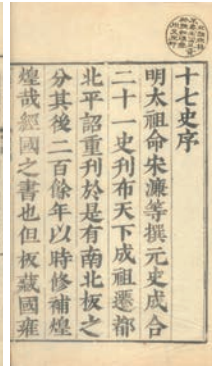 十七史序
明太祖命宋濂等撰元史成合
二十一史刊布天下成祖遷都
北平詔重刊於是有南北板之
分其後二百餘年以時修補煌
煌哉經國之書也但板藏國雍